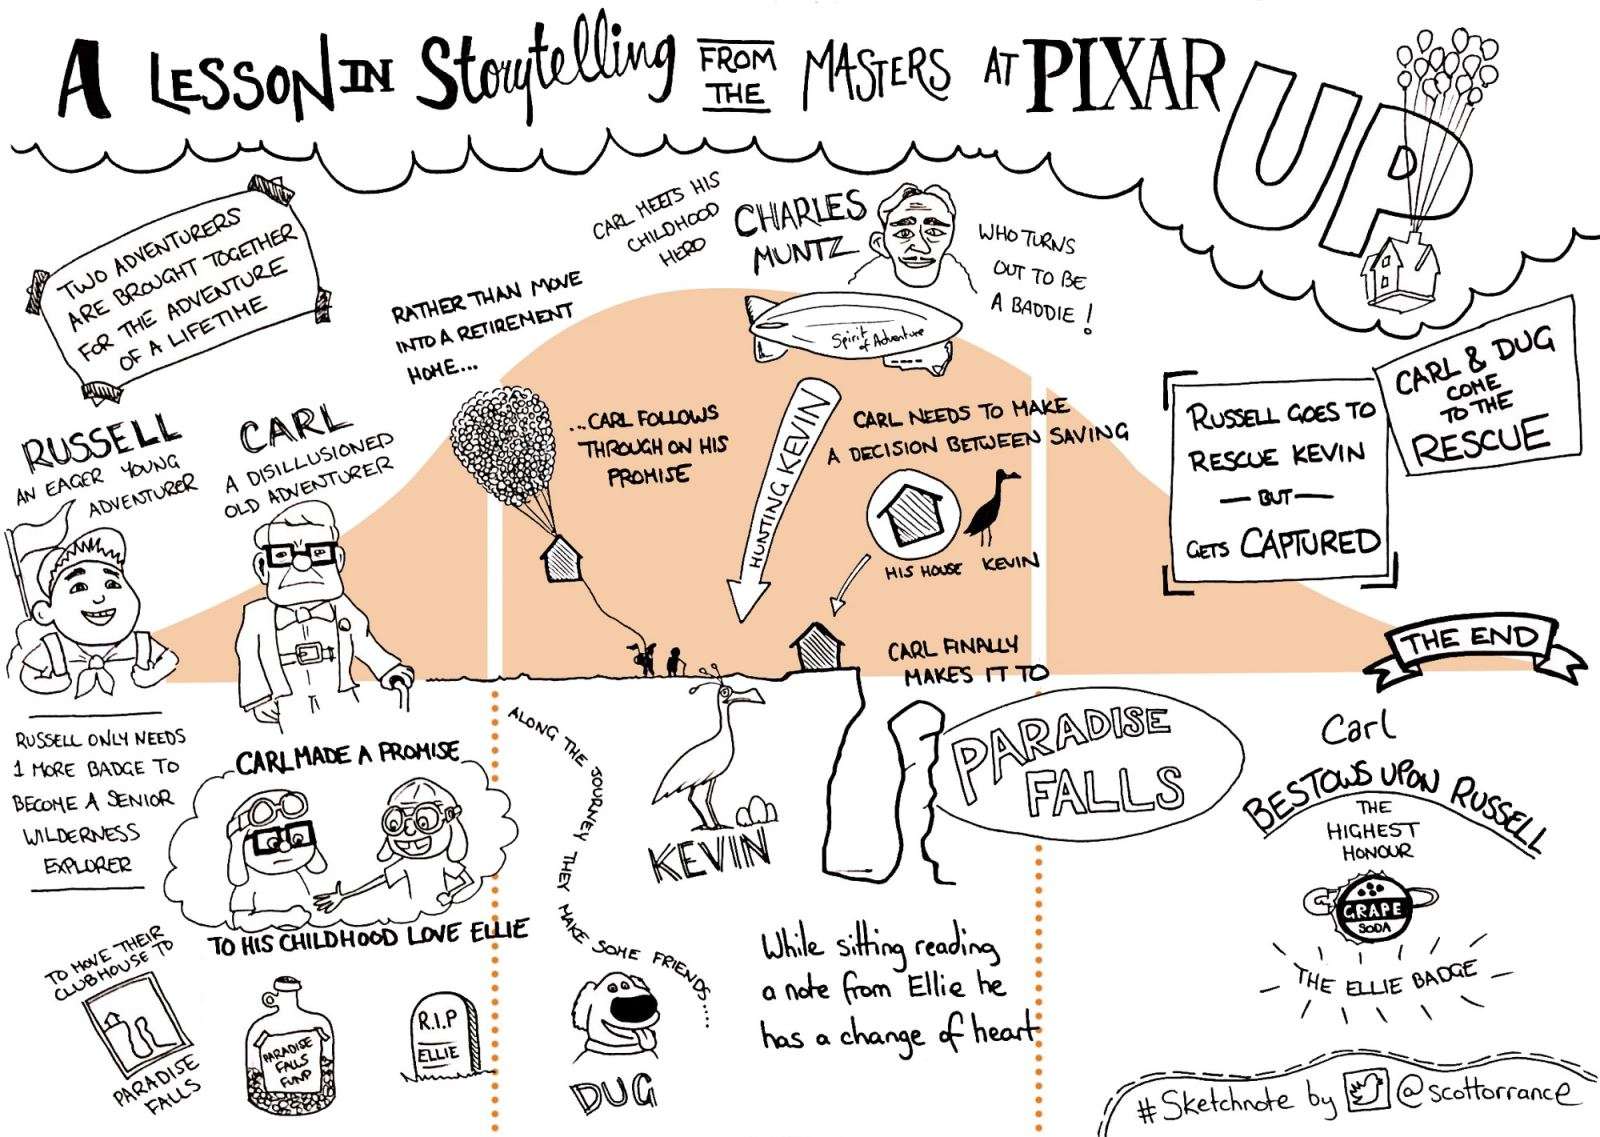 A LESSON IN Storytelling FROM THE MASTERS AT PIXAR
UP
TWO ADVENTURERS
ARE BROUGHT TOGETHER
FOR THE ADVENTURE
OF A LIFETIME
RUSSELL
AN EAGER YOUNG
ADVENTURER
CARL
A DISILLUSIONED
OLD ADVENTURER
RUSSELL ONLY NEEDS
1 MORE BADGE TO
BECOME A SENIOR
WILDERNESS
EXPLORER
CARL MADE A PROMISE
TO HIS CHILDHOOD LOVE ELLIE
TO MOVE THEIR
CLUBHOUSE TO
PARADISE
FALLS
PARADISE
FALLS
FUND
R.I.P
ELLIE
RATHER THAN MOVE
INTO A RETIREMENT
HOME...
...CARL FOLLOWS
THROUGH ON HIS
PROMISE
CARL MEETS HIS
CHILDHOOD
HERO
CHARLES
MUNTZ
WHO TURNS
OUT TO BE
A BADDIE!
Spirit
of Adventure
HUNTING KEVIN
CARL NEEDS TO MAKE
A DECISION BETWEEN SAVING
HIS HOUSE
KEVIN
ALONG THE JOURNEY THEY MAKE SOME FRIENDS.....
KEVIN
DUG
CARL FINALLY
MAKES IT TO
PARADISE
FALLS
While sitting reading
a note from Ellie he
has a change of heart
RUSSELL GOES TO
RESCUE KEVIN
— BUT —
GETS CAPTURED
CARL & DUG
COME
TO THE
RESCUE
THE END
Carl
BESTOWS UPON RUSSELL
THE
HIGHEST
HONOUR
GRAPE
SODA
THE ELLIE BADGE
# Sketchnote by @scottorrance